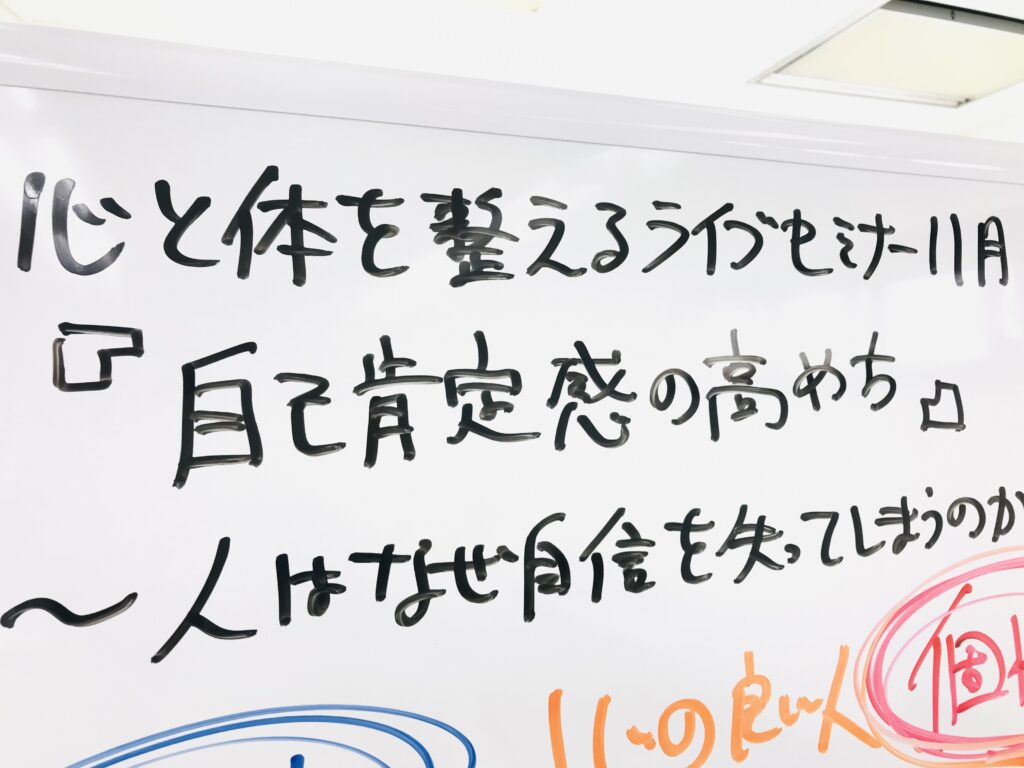 心と体を整えるライブセミナー11月
『自己肯定感の高め方』
～人はなぜ自信を失ってしまうのか
心の良い人 個